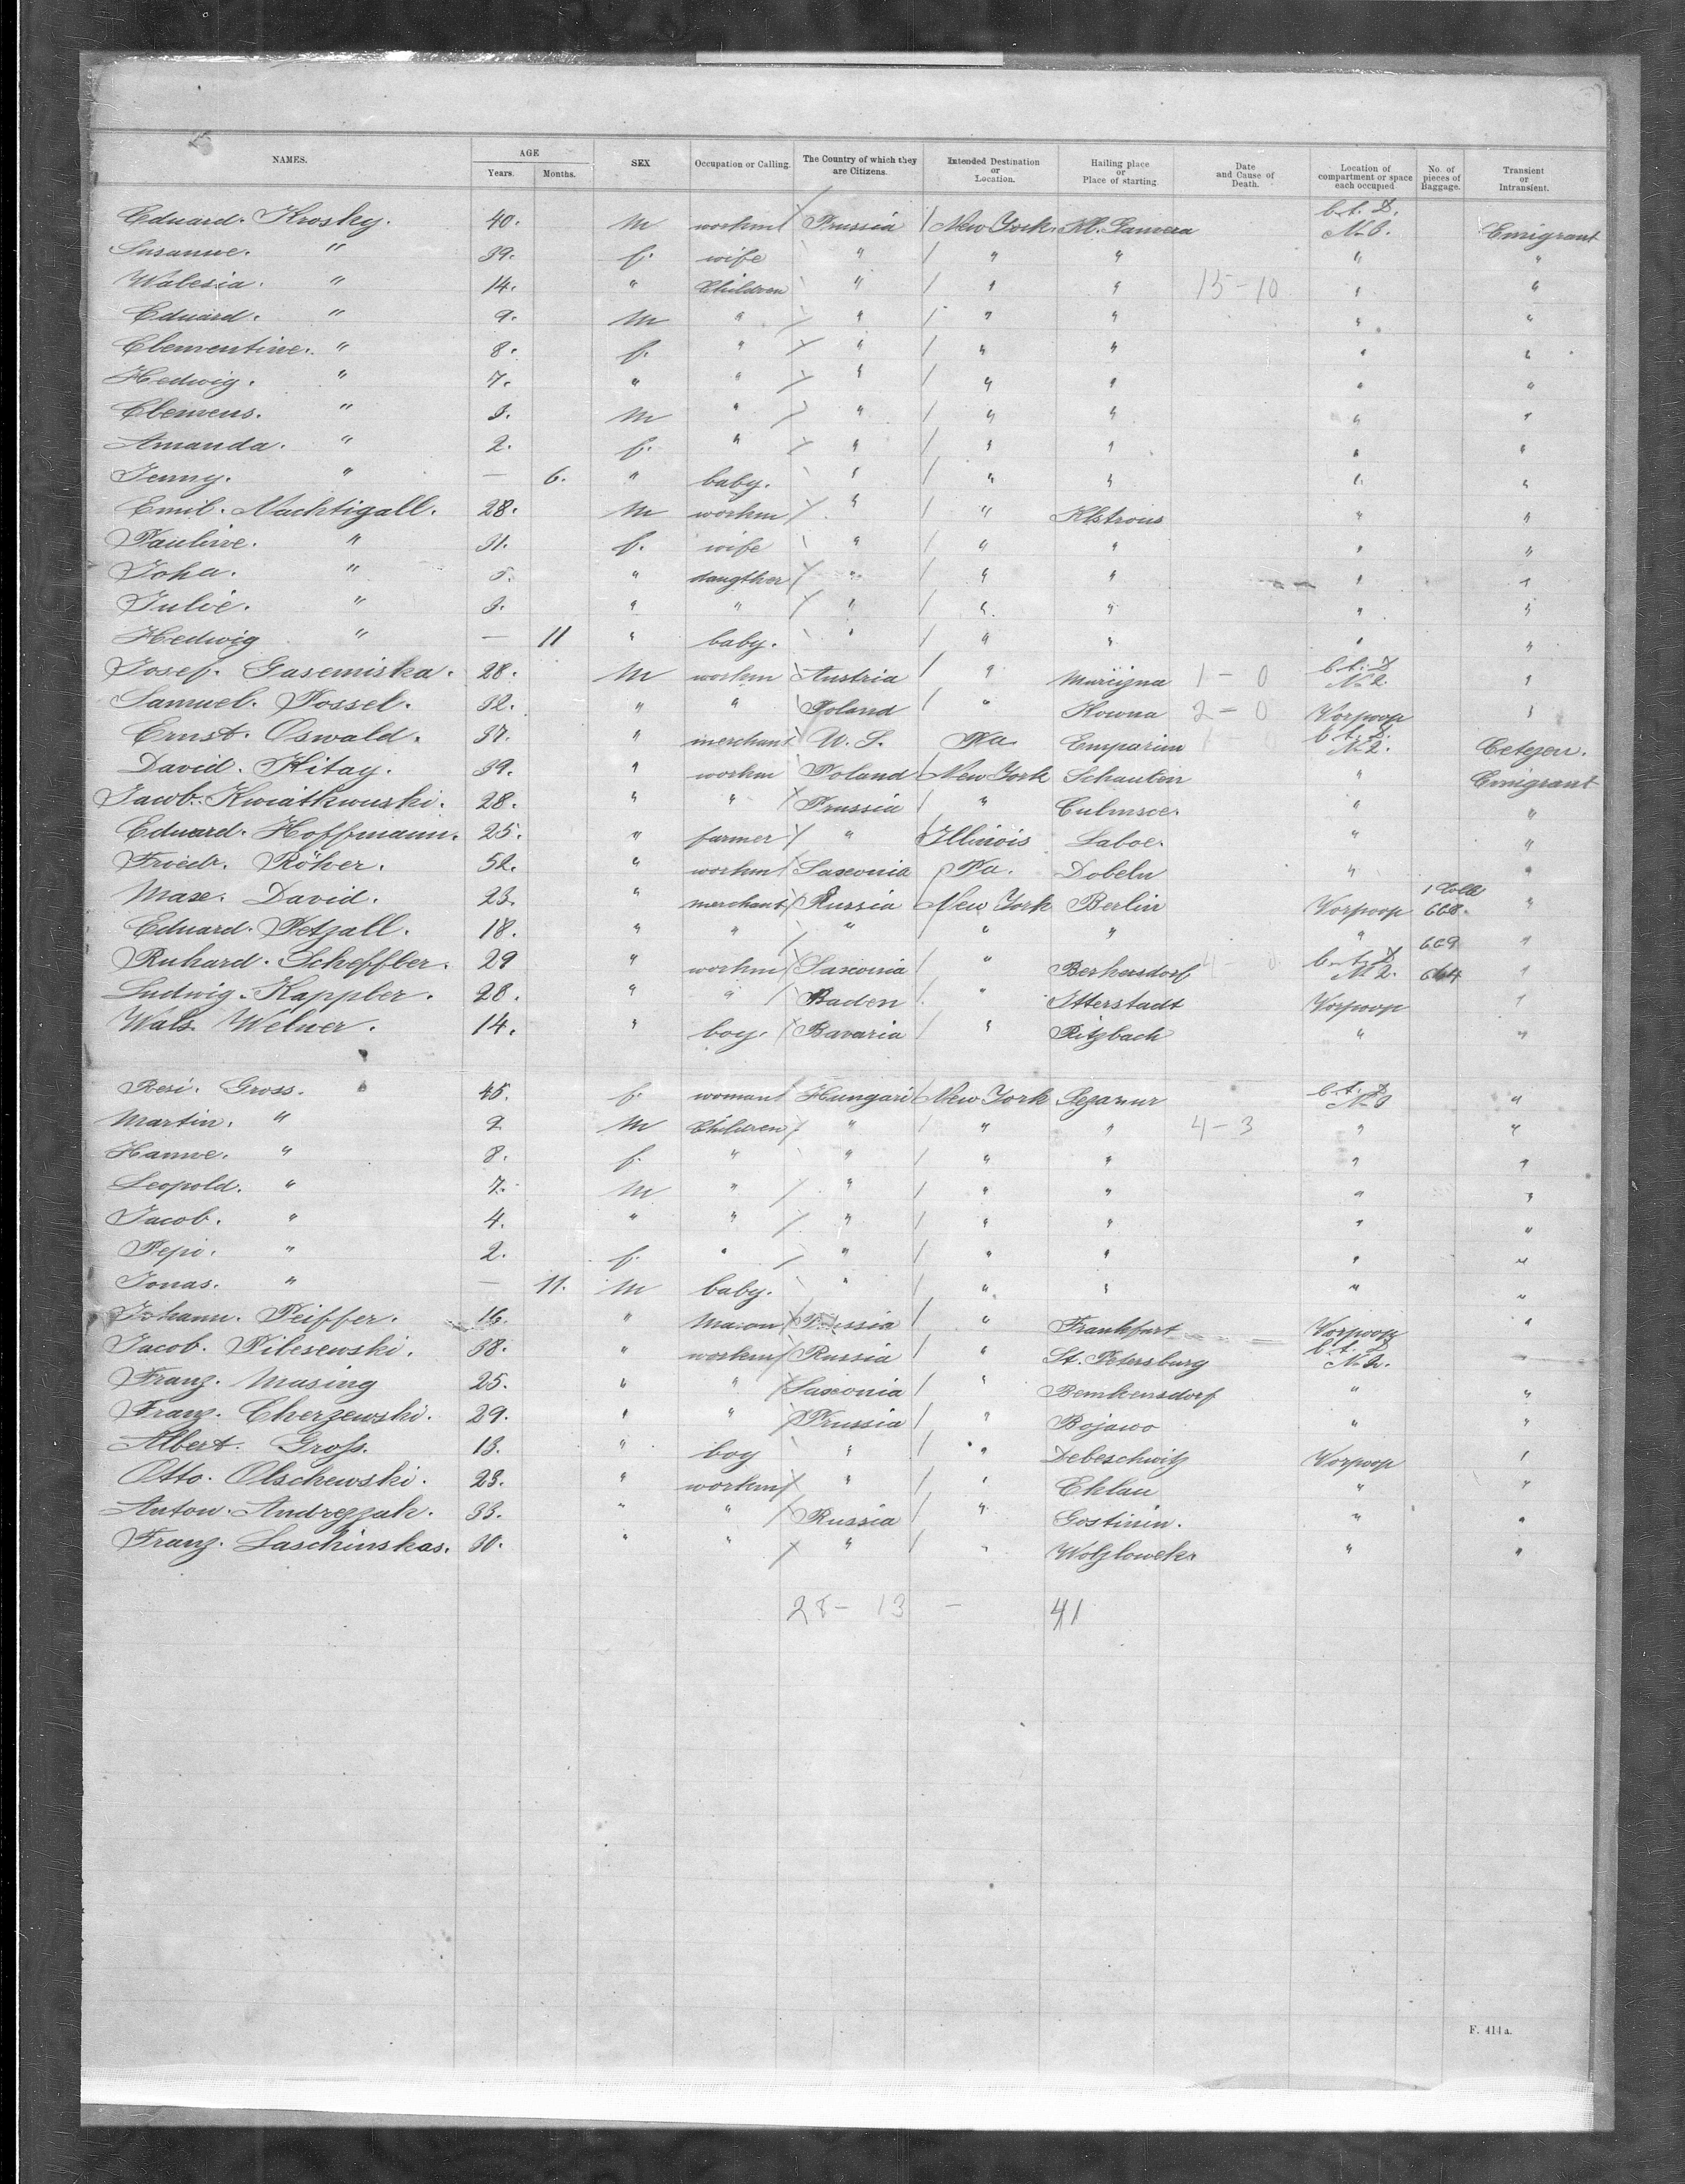 NAMES. AGE Years. Months. SEX Occupation or Calling. The Country of which they are Citizens. Intended Destination or Location. Hailing place or Place of starting. Date and Cause of Death. Location of compartment or space each occupied No. of pieces of Baggage. Transient or Intransient.
Eduard. Krosky. 40. M workm Prussia New York. Kl. b.t. D. N 3. Emigrant
Susanne. " 39. f. wife " " " " "
Walesia. " 14. " Children " " " 15-10 " "
Eduard. " 9. M " " " " " "
Clementine. " 8. f. " " " " " "
Hedwig. " 7. " " " " " " "
Clemens. " 3. M " " " " " "
Amanda. " 2. f. " " " " " "
Jenny. " — 6. " baby. " " " " "
Emil. Nachtigall. 28. M workm " " Klstrous " "
Pauline. " 31. f. wife " " " " "
Joha. " 5. " daugther " " " " "
Julie. " 3. " " " " " " "
Hedwig " — 11 " baby. " " " " "
Josef. Gasemiska. 28. M workm Austria " 1 - 0 b.t. D N 2. "
Samuel. Possel. 32. " " Poland " Kowna 2 - 0 Vorpoop "
Ernst. Oswald. 37. " merchant U. S. Pa. Emparim b.t. D. N 2. Cetezen.
David. Kitay. 39. " workm Poland New York Schauten " Emigrant
Jacob. Kwiatkwuski. 28. " " Prussia " Culmsee. " "
Eduard. Hoffmann. 25. " farmer " Illinois Laboe. " "
Friedr. Röher. 52. " workm Saxonia Pa. Dobeln " "
Max. David. 23. " merchant Russia New York Berlin Vorpoop 1 Colli 668. "
Eduard. Petzall. 18. " " " " " " 669 "
Ruhard. Scheffler. 29 " workm Saxonia " Berhersdorf 4 - 0 b.t. D N 2. 664 "
Ludwig. Kappler. 28. " " Baden " Itterstadt Vorpoop "
Wals Welner. 14. " boy. Bavaria " Pitzbach " "
Resi. Gross. 45. f. woman Hungari New York b.t. D N 3 "
Martin. " 9 M Children " " " 4-3 " "
Hanne. " 8. f. " " " " " "
Leopold. " 7. M " " " " " "
Jacob. " 4. " " " " " " "
Pepi. " 2. f. " " " " " "
Jonas. " — 11. M baby. " " " " "
Johann. Peiffer. 16. " Mason " Frankfurt Vorpoop "
Jacob. Pilesewski. 38. " workm Russia " St. Petersburg b.t. D N 2. "
Franz. Masing 25. " " Saxonia " Bemkensdorf " "
Franz. Cherzewski. 29. " " Prussia " Bojawo " "
Albert. Gross. 13. " boy " " Debeschwitz Vorpoop "
Otto. Olschewski. 23. " workm " " Ehlau " "
Anton. Andrezzak. 33. " " Russia " Gostinin. " "
Franz. Laschinskas. 30. " " " " Wolzlowek. " "
28 - 13 - 41
F. 414 a.